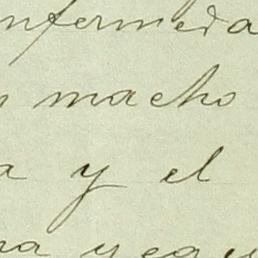 nfermeda
n macho
a y el
na yegu